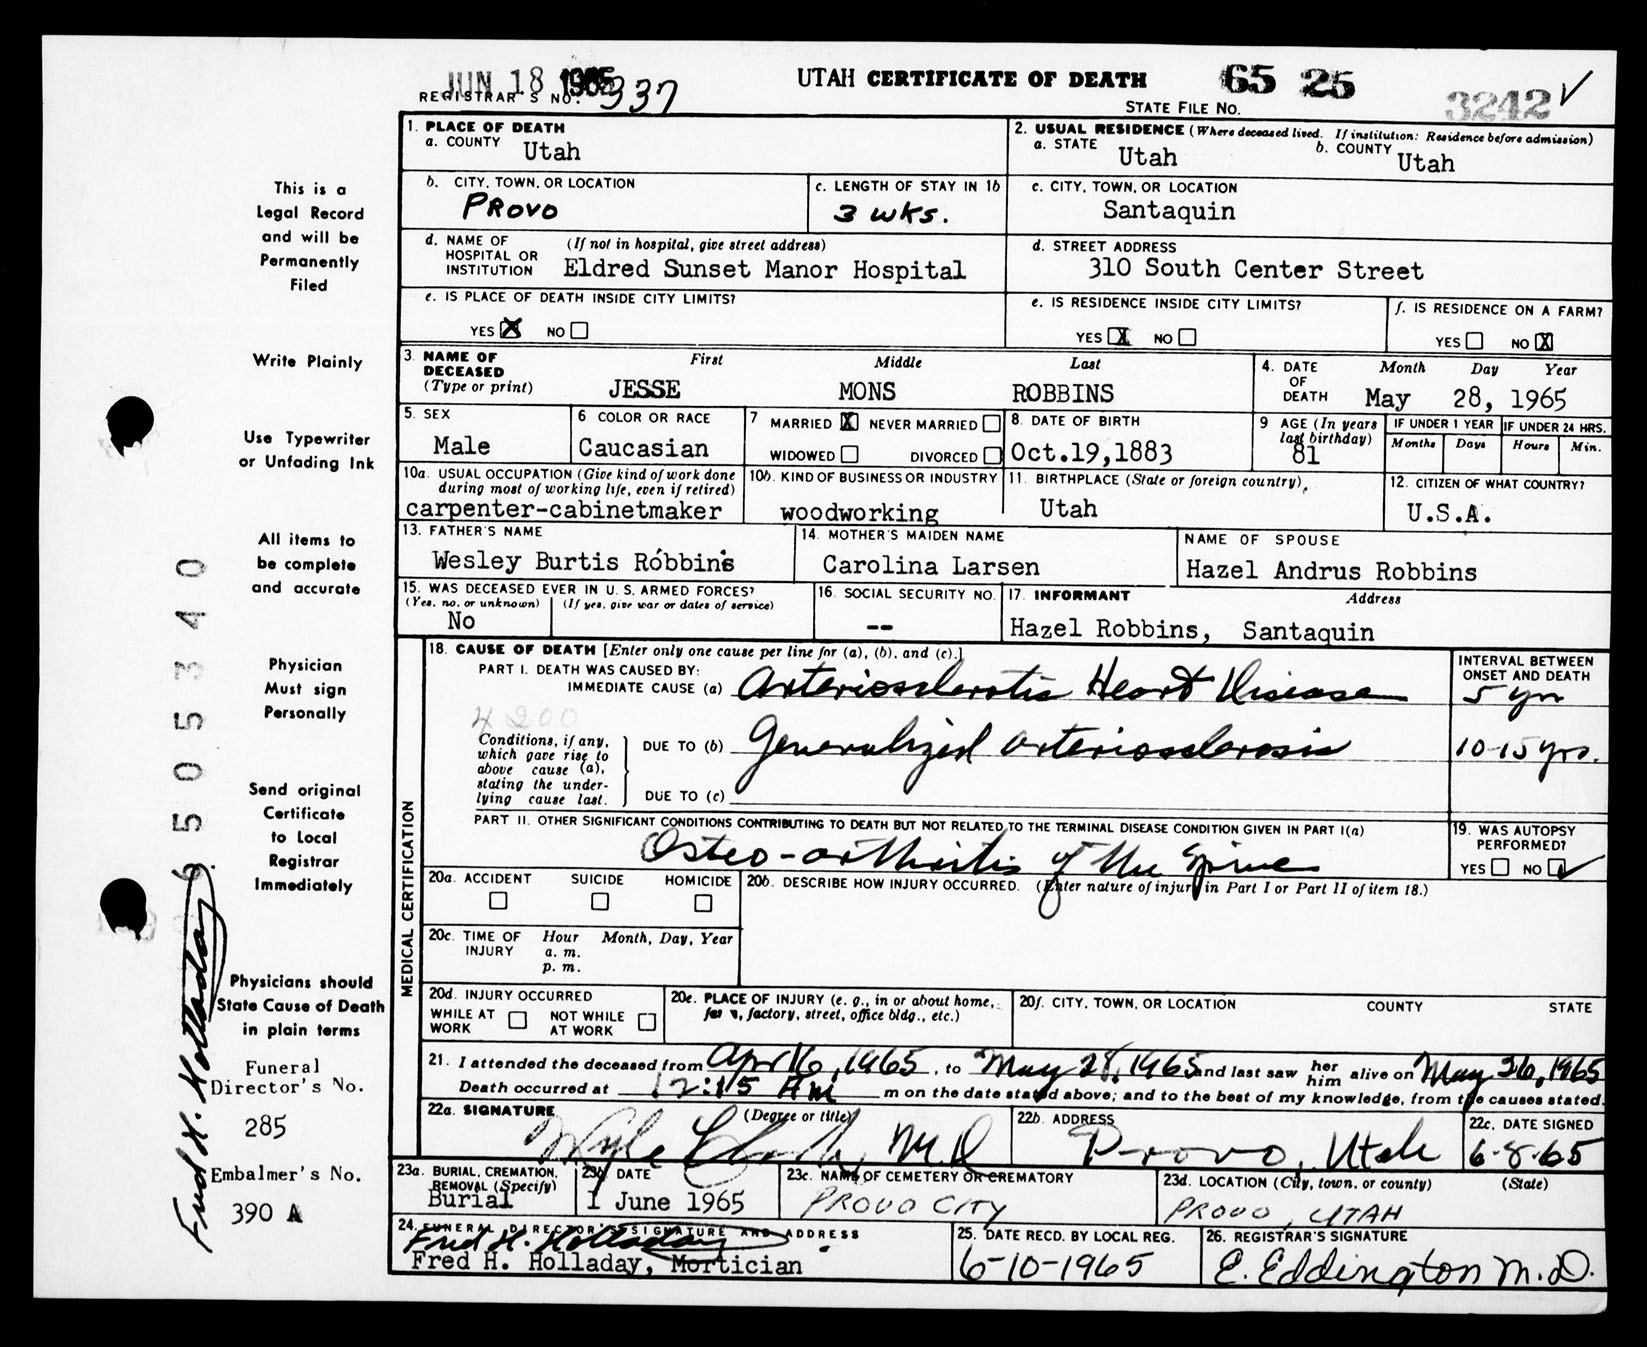 JUN 18 1965
REGISTRAR'S NO. 337
UTAH CERTIFICATE OF DEATH 65 25
STATE FILE NO. 3242 ✓
This is a
Legal Record
and will be
Permanently
Filed
Write Plainly
Use Typewriter
or Unfading Ink
All items to
be complete
and accurate
Physician
Must sign
Personally
Send original
Certificate
to Local
Registrar
Immediately
Physicians should
State Cause of Death
in plain terms
Funeral
Director's No.
285
Embalmer's No.
390 A
Fred H. Holladay
1. PLACE OF DEATH
a. COUNTY Utah
2. USUAL RESIDENCE (Where deceased lived. If institution: Residence before admission)
a. STATE Utah b. COUNTY Utah
b. CITY, TOWN, OR LOCATION PROVO
c. LENGTH OF STAY IN 1b 3 WKS.
c. CITY, TOWN, OR LOCATION
Santaquin
d. NAME OF HOSPITAL OR INSTITUTION (If not in hospital, give street address)
Eldred Sunset Manor Hospital
d. STREET ADDRESS
310 South Center Street
e. IS PLACE OF DEATH INSIDE CITY LIMITS?
YES X NO
e. IS RESIDENCE INSIDE CITY LIMITS?
YES X NO
f. IS RESIDENCE ON A FARM?
YES NO X
3. NAME OF DECEASED (Type or print) First Middle Last
JESSE MONS ROBBINS
4. DATE OF DEATH Month Day Year
May 28, 1965
5. SEX
Male
6 COLOR OR RACE
Caucasian
7 MARRIED X NEVER MARRIED
WIDOWED DIVORCED
8. DATE OF BIRTH
Oct.19,1883
9 AGE (In years last birthday)
81
IF UNDER 1 YEAR IF UNDER 24 HRS.
Months Days Hours Min.
10a. USUAL OCCUPATION (Give kind of work done during most of working life, even if retired)
carpenter-cabinetmaker
10b. KIND OF BUSINESS OR INDUSTRY
woodworking
11. BIRTHPLACE (State or foreign country)
Utah
12. CITIZEN OF WHAT COUNTRY?
U.S.A.
13. FATHER'S NAME
Wesley Burtis Robbins
14. MOTHER'S MAIDEN NAME
Carolina Larsen
NAME OF SPOUSE
Hazel Andrus Robbins
15. WAS DECEASED EVER IN U. S. ARMED FORCES?
(Yes, no, or unknown) (If yes, give war or dates of service)
No
16. SOCIAL SECURITY NO.
--
17. INFORMANT Address
Hazel Robbins, Santaquin
MEDICAL CERTIFICATION
18. CAUSE OF DEATH [Enter only one cause per line for (a), (b), and (c).]
PART I. DEATH WAS CAUSED BY:
IMMEDIATE CAUSE (a) Arteriosclerotic Heart Disease
INTERVAL BETWEEN ONSET AND DEATH
5 yrs
4200
Conditions, if any, which gave rise to above cause (a), stating the underlying cause last.
DUE TO (b) Generalized arteriosclerosis 10-15 yrs.
DUE TO (c)
PART II. OTHER SIGNIFICANT CONDITIONS CONTRIBUTING TO DEATH BUT NOT RELATED TO THE TERMINAL DISEASE CONDITION GIVEN IN PART I(a)
Osteo-arthritis of the Spine
19. WAS AUTOPSY PERFORMED?
YES NO ✓
20a. ACCIDENT SUICIDE HOMICIDE
20b. DESCRIBE HOW INJURY OCCURRED. (Enter nature of injury in Part I or Part II of item 18.)
20c. TIME OF INJURY Hour Month, Day, Year
a. m.
p. m.
20d. INJURY OCCURRED
WHILE AT WORK NOT WHILE AT WORK
20e. PLACE OF INJURY (e. g., in or about home, farm, factory, street, office bldg., etc.)
20f. CITY, TOWN, OR LOCATION COUNTY STATE
21. I attended the deceased from Apr 16, 1965, to May 28, 1965 and last saw her him alive on May 26, 1965
Death occurred at 12:15 AM m on the date stated above; and to the best of my knowledge, from the causes stated.
22a. SIGNATURE (Degree or title)
M D
22b. ADDRESS
Provo, Utah
22c. DATE SIGNED
6-8-65
23a. BURIAL, CREMATION, REMOVAL (Specify)
Burial
23b. DATE
1 June 1965
23c. NAME OF CEMETERY OR CREMATORY
PROVO CITY
23d. LOCATION (City, town, or county) (State)
PROVO, UTAH
24. FUNERAL DIRECTOR'S SIGNATURE AND ADDRESS
Fred H. Holladay
Fred H. Holladay, Mortician
25. DATE RECD. BY LOCAL REG.
6-10-1965
26. REGISTRAR'S SIGNATURE
E. Eddington M.D.